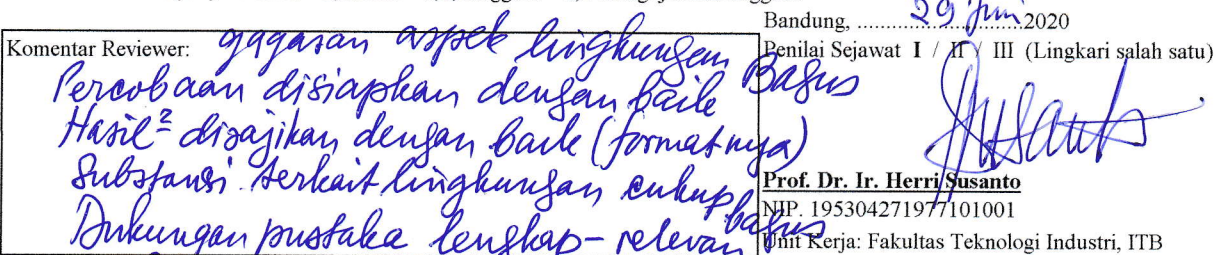 Komentar Reviewer: gagasan aspek lingkungan Bagus
Percobaan disiapkan dengan baik
Hasil² disajikan dengan baik (formatnya)
Substansi terkait lingkungan cukup bagus
Dukungan pustaka lengkap - relevan
Bandung, ..........29 Juni..........2020
Penilai Sejawat I / II / III (Lingkari salah satu)
Prof. Dr. Ir. Herri Susanto
NIP. 195304271977101001
Unit Kerja: Fakultas Teknologi Industri, ITB